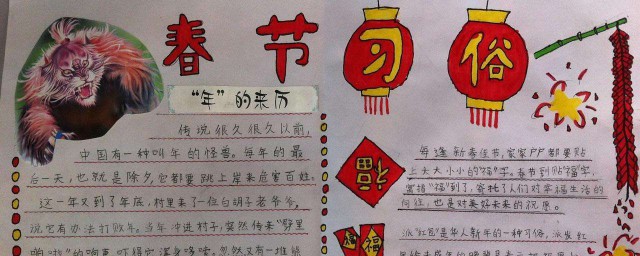 春节习俗
“年”的来历
传说很久很久以前，
中国有一种叫年的怪兽。每年的最
后一天，也就是除夕，它都要跳上岸来危害百姓。
这一年又到了年底，村里来了一位白胡子老爷爷，
说它有办法打败年。当年冲进村子，突然传来“噼里
啪啦”的响声，吓得它浑身哆嗦。忽然又有一堆
福
每逢新春佳节，家家户户都要贴
上大大小小的“福”字。春节到贴“福”字，
常指“福”到了，寄托了人们对幸福生活的
向往，也是对美好未来的祝愿。
福
福
派“红包”是华人新年的一种习俗，派发红